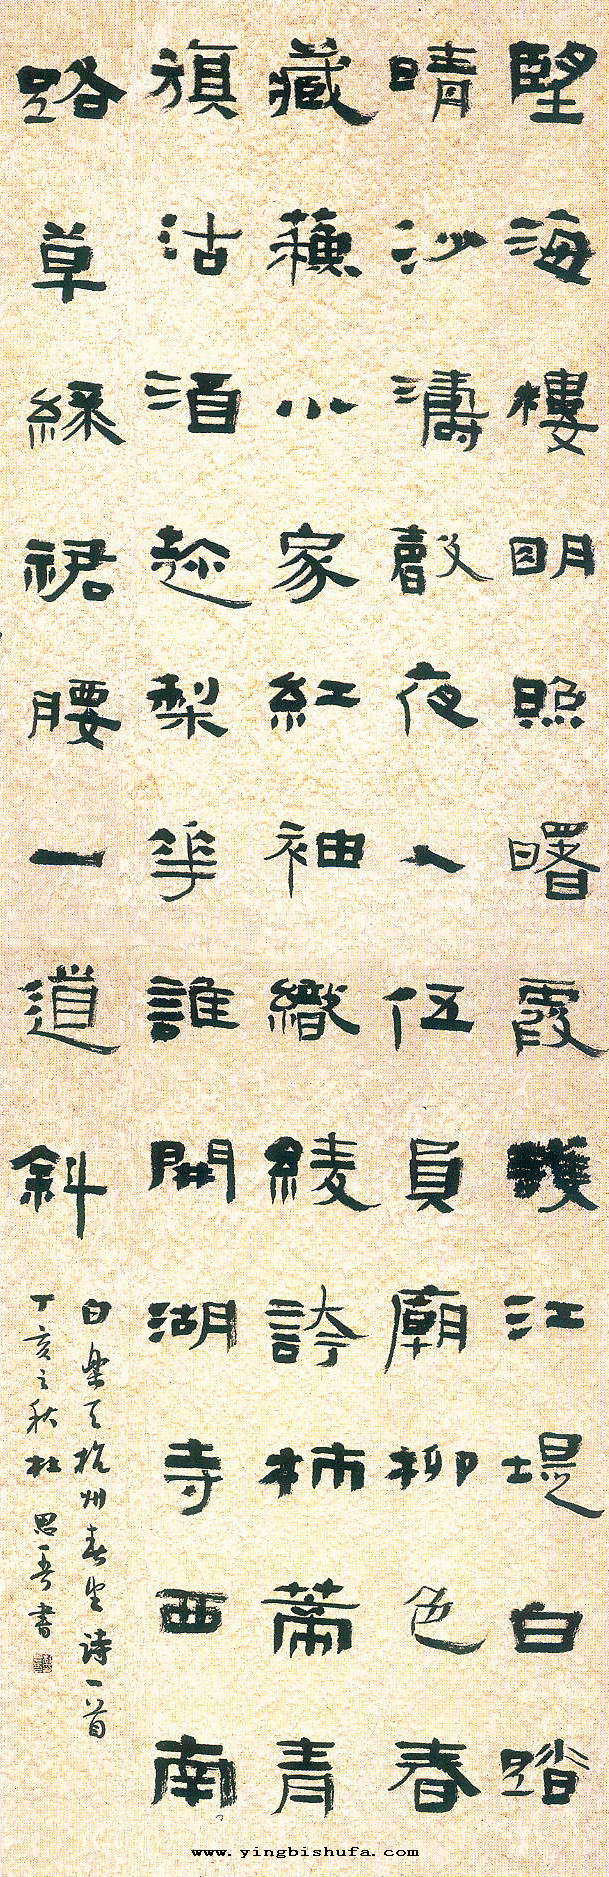 朢海樓明照曙霞護江堤白踏
晴沙濤聲夜入伍員廟柳色春
藏蘓小家紅袖織綾誇柿蔕青
旗沽酒趂梨華誰開湖寺西南
路草綠裙腰一道斜
白樂天杭州春望詩一首
丁亥之秋杜思書
www.yingbishufa.com